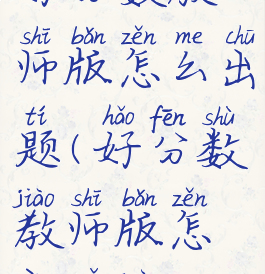 shī bǎn zěn me chū
师版怎么出
tí hǎo fēn shù
题(好分数
jiào shī bǎn zěn
教师版怎